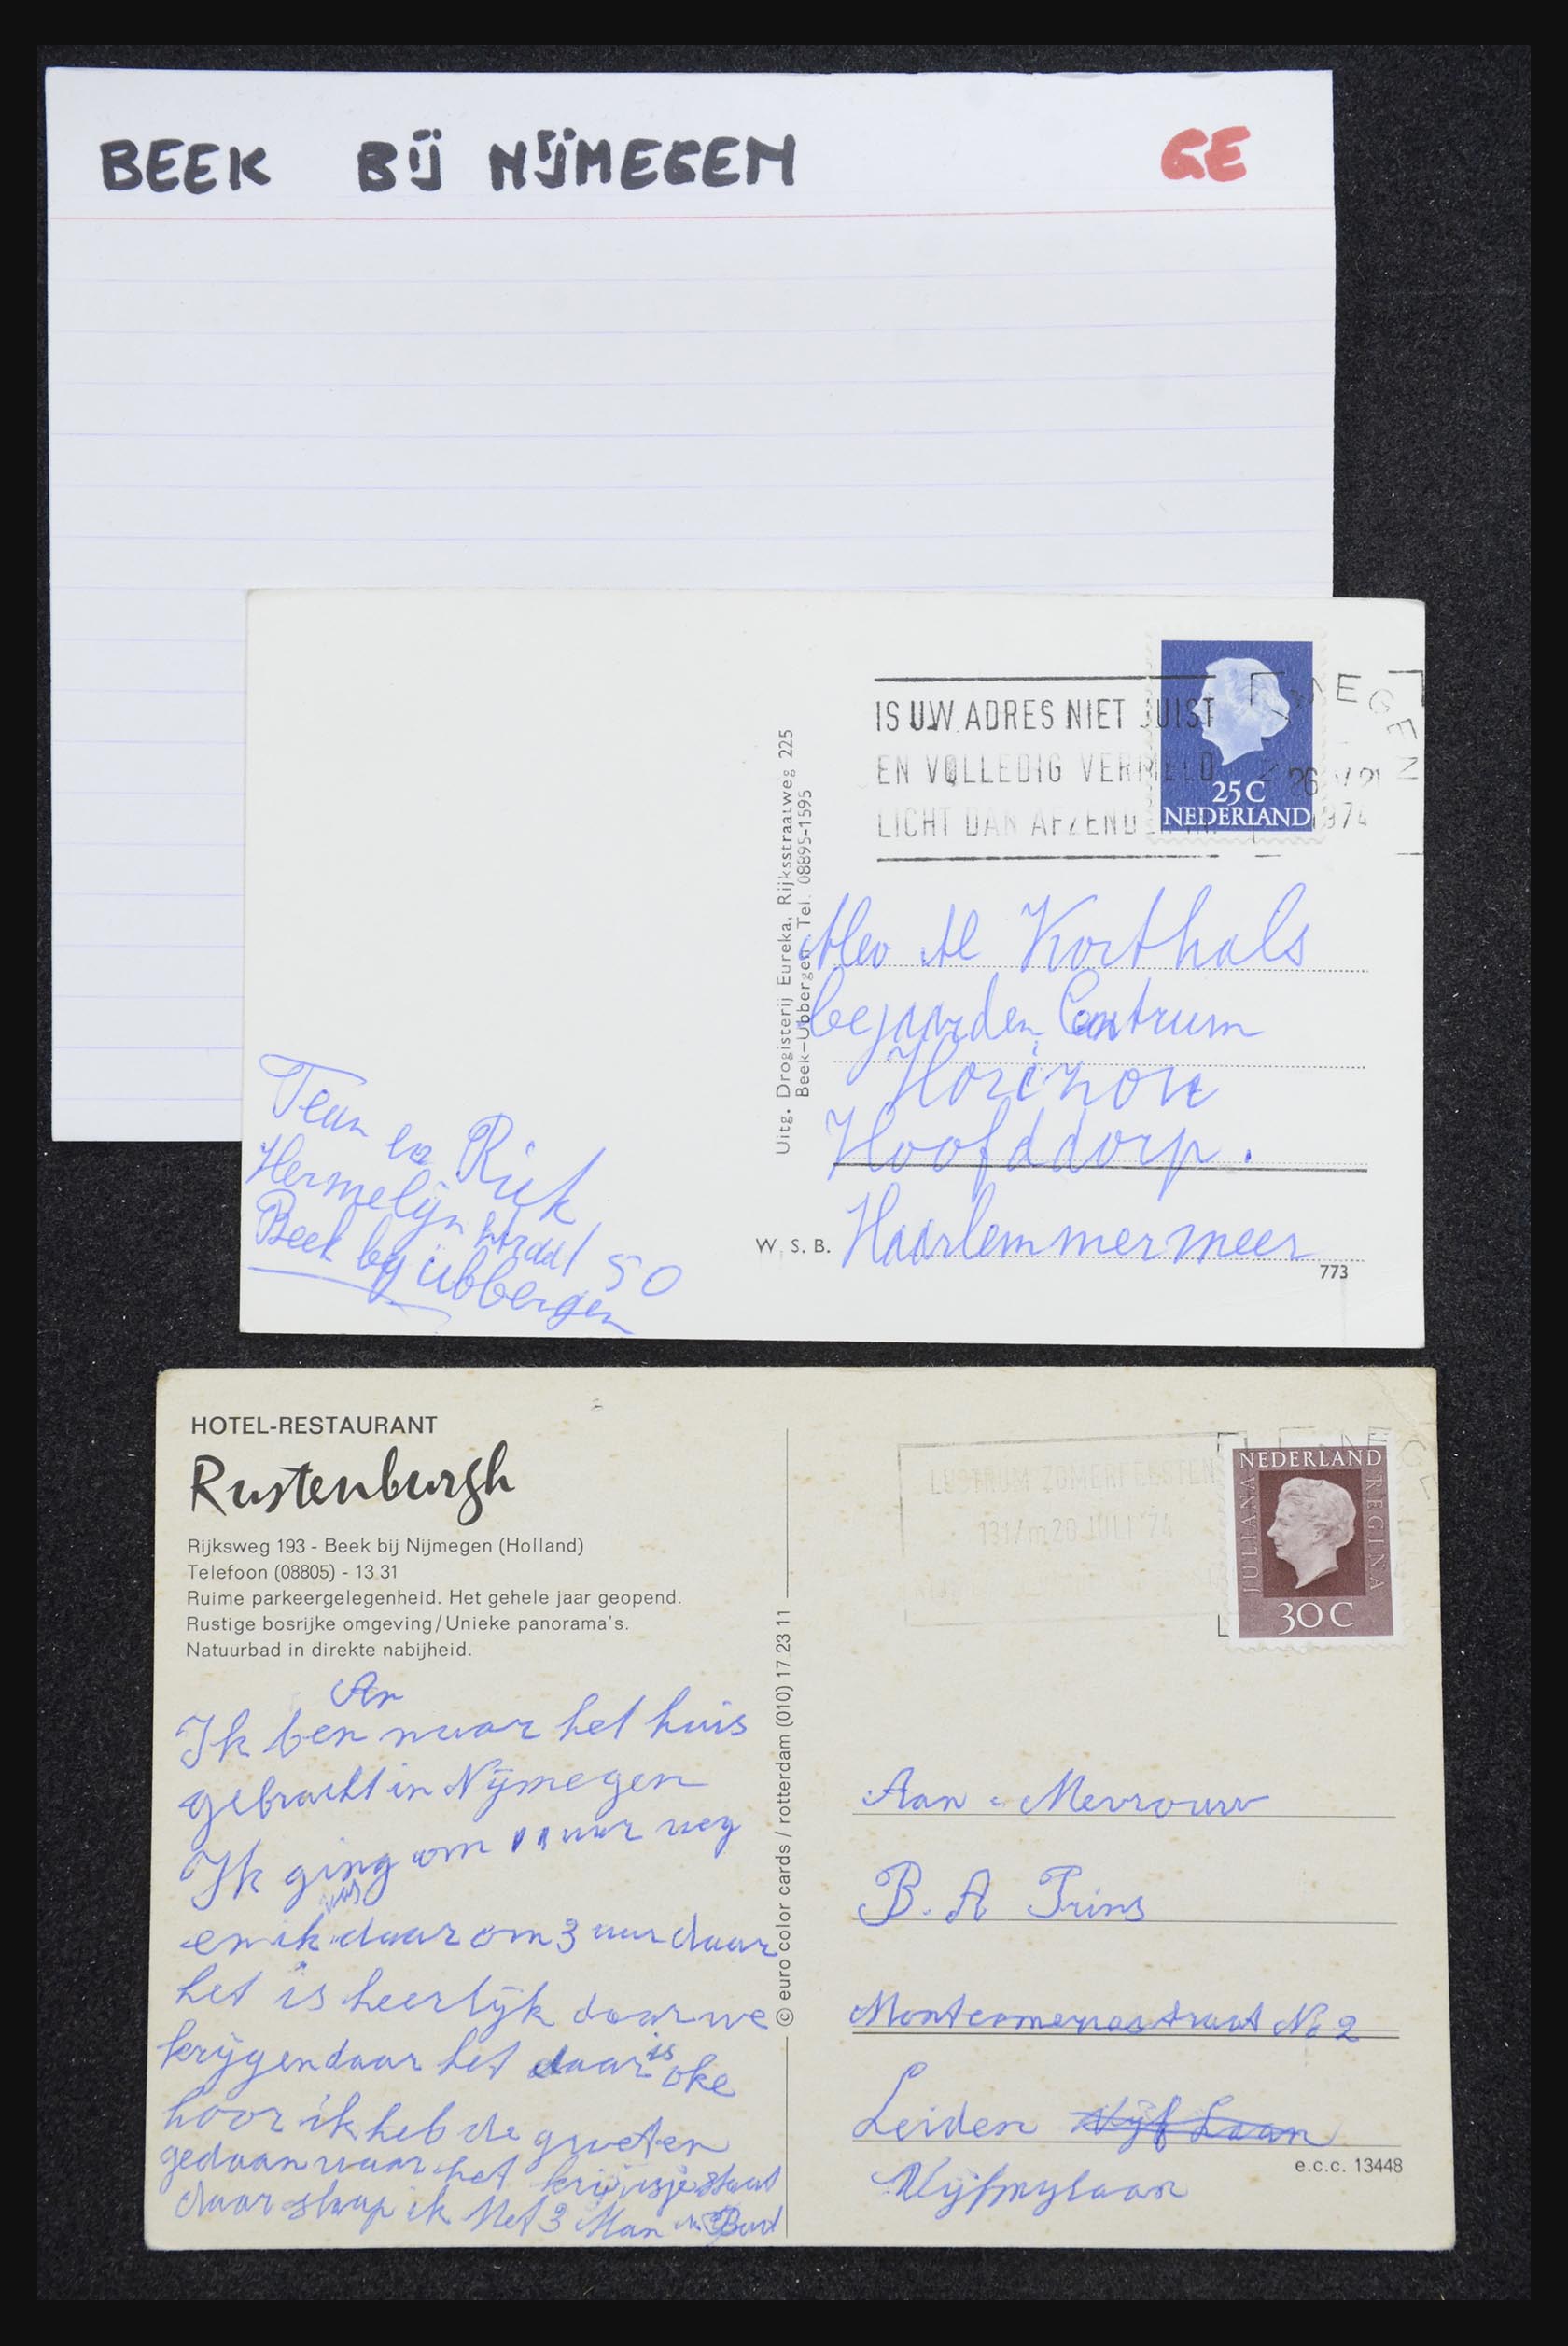 BEEK BIJ NIJMEGEN GE
IS UW ADRES NIET JUIST
EN VOLLEDIG VERMELD
LICHT DAN AFZENDER IN
NIJMEGEN
26 V 21
1974
25 C
NEDERLAND
Uitg. Drogisterij Eureka, Rijksstraatweg 225
Beek-Ubbergen Tel. 08895-1595
Mev Korthals
bejaarden Centrum
Horizon
Hoofddorp.
Haarlemmermeer
W.S.B.
773
Teun en Riek
Hermelijn 50
Beek by übbergen
HOTEL-RESTAURANT
Rustenburgh
Rijksweg 193 - Beek bij Nijmegen (Holland)
Telefoon (08805) - 13 31
Ruime parkeergelegenheid. Het gehele jaar geopend.
Rustige bosrijke omgeving/Unieke panorama's.
Natuurbad in direkte nabijheid.
An
Ik ben naar het huis
gebracht in Nijmegen
Ik ging om 11 uur weg
en ik was daar om 3 uur daar
het is heerlijk daar we
krijgen daar het daar is oke
hoor ik heb de groeten
gedaan waar het kruisje staat
daar slaap ik Met 3 Man
© euro color cards / rotterdam (010) 17 23 11
LUSTRUM ZOMERFEESTEN
13 t/m 20 JULI '74
NEDERLAND
JULIANA REGINA
30 C
Aan Mevrouw
B. A Prins
No 2
Leiden
e.c.c. 13448